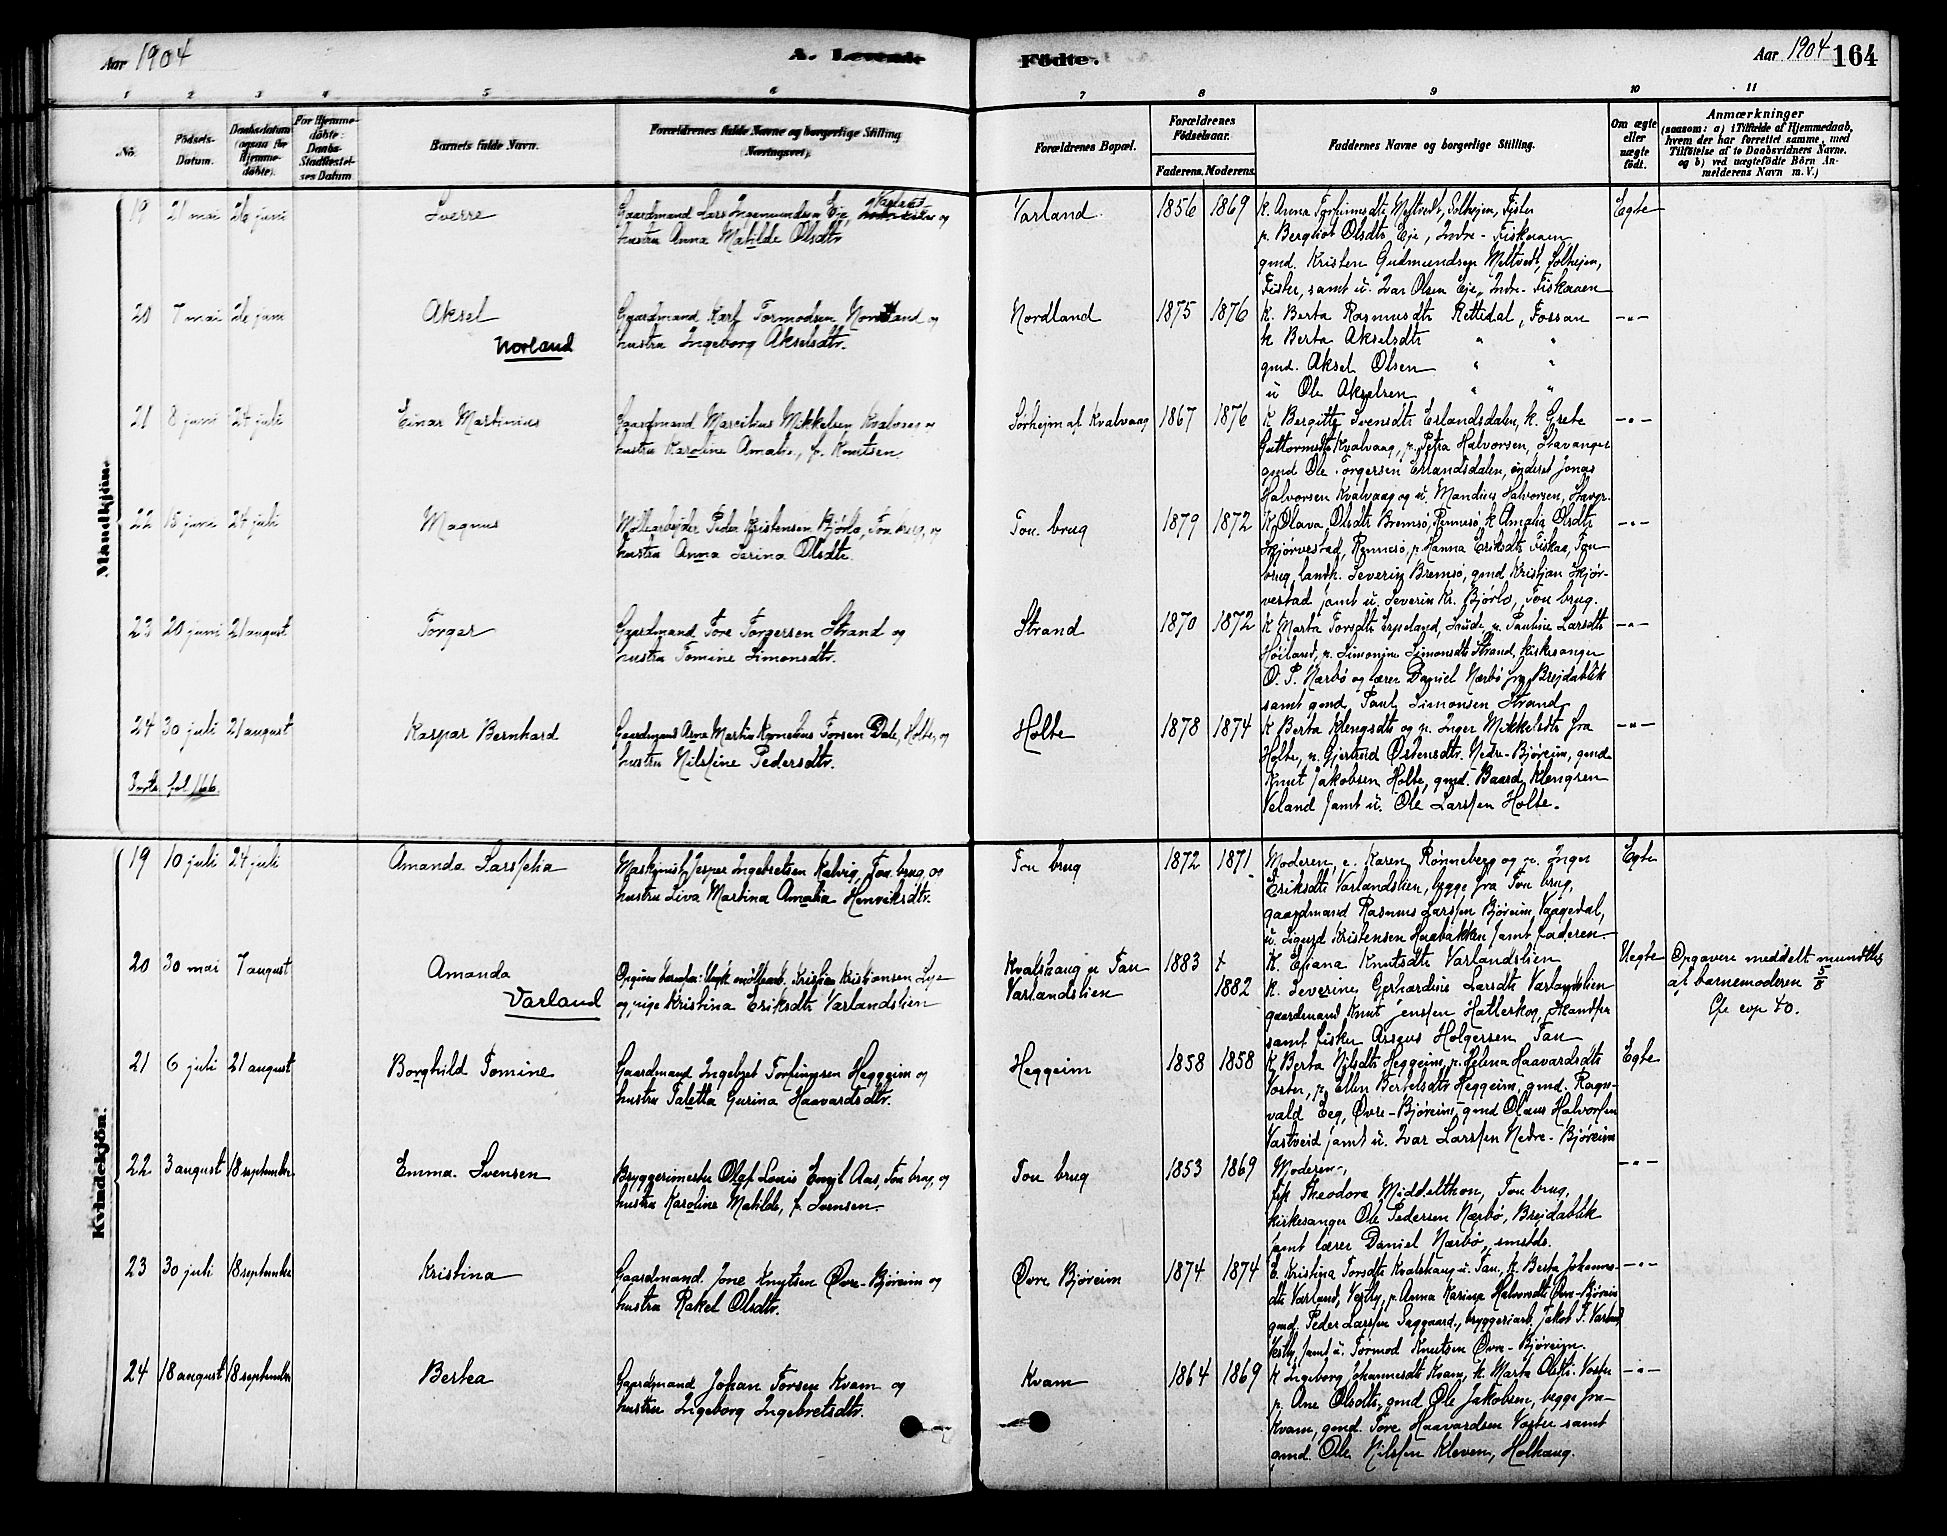 Aar 1904
A. Levende
Födte.
Aar 1904
164
1 2 3 4 5 6 7 8 9 10 11
No.
Födsels-
Datum.
Daabsdatum
(ogsaa for
Hjemme-
döbte).
For Hjemme-
döbte:
Daabs-
Stadfæstel-
ses Datum
Barnets fulde Navn.
Forældrenes fulde Navne og borgerlige Stilling
(Næringsvei).
Forældrenes Bopæl.
Forældrenes
Födselsaar.
Faderens. Moderens.
Faddernes Navne og borgerlige Stilling.
Om ægte
eller
uægte
födt.
Anmærkninger
(saasom: a) i Tilfælde af Hjemmedaab,
hvem der har forrettet samme, med
Tilföielse af to Daabsvidners Navne.
og b) ved uægtefödte Börn An-
melderens Navn m. V.)
Mandkjön.
19 21 mai 26 juni Sverre
Gaardmand Lars Ingemundsen Eje, Varland og
hustru Anna Matilde Olsdtr.
Varland 1856 1869
k. Anna Torfinnsdtr Meltvedt, Solhejm, Fister
p. Bergliot Olsdtr Eje, Indre-Fiskaaen
gmd. Kristen Gudmundsen Meltvedt, Solhejm,
Fister, samt u. Ivar Olsen Eje, Indre-Fiskaaen
Egte
20 7 mai 26 juni Aksel
Norland
Gaardmand Karl Tormodsen Nordland og
hustru Ingeborg Akselsdtr.
Nordland 1875 1876
k. Berta Rasmusdtr Rettedal, Fossan
k Berta Akselsdtr " "
gmd. Aksel Olsen " "
u Ole Akselsen " "
-"-
21 8 juni 24 juli Einar Martinius
Gaardmand Marselius Mikkelsen Kvalvaag og
hustru Karoline Amalie, f. Knutsen.
Sørhejm af Kvalvaag 1867 1876
K Bergitte Svensdtr Erlandsdalen, k. Grete
Guttormsdtr Kvalvaag, p. Petra Halvorsen, Stavanger
gmd Ole Torgersen Erlandsdalen, inderst Jonas
Halvorsen Kvalvaag og u. Mandius Halvorsen, Stavgr.
-"-
22 15 juni 24 juli Magnus
Møllearbejder Peder Kristensen Bjørlo, Tou brug, og
hustru Anna Serina Olsdtr.
Tou brug 1879 1872
K Olava Olsdtr Bremsø, Rennesø, k Amalia Olsdtr
Skjørvestad, Rennesø, p. Hanna Eriksdtr Fiskaa, Tou
brug, landh. Severin Bremsø, gmd Kristjan Skjør-
vestad samt u. Severin Kr. Bjørlo, Tou brug.
-"-
23 20 juni 21 august Torger
Gaardmand Tore Torgersen Strand og
hustru Tomine Simonsdtr.
Strand 1870 1872
k Marta Torsdtr, Saude, p. Pauline Larsdtr
Høiland, p. Simonine Simonsdtr Strand, kirkesanger
O. P. Nærbø og lærer Daniel Nærbø fra Brejdablik
samt gmd Paul Simonsen Strand
-"-
24 30 juli 21 august Kaspar Bernhard
Gaardmand Arne Martin Kornelius Torsen Dale, Holte, og
hustru Nilsine Pedersdtr.
Forts. fol 166.
Holte 1878 1874
k Berta Klengsdtr og p. Inger Mikkelsdtr fra
Holte, p. Gjertrud Østensdtr. Nedre-Bjøreim, gmd
Knut Jakobsen Holte, gmd. Baard Klengsen
Veland samt u. Ole Larssen Holte.
-"-
Kvindekjön.
19 10 juli 24 juli Amanda Larsselia
Maskinist Jesper Ingebretsen Kalvig, Tou brug, og
hustru Liva Martina Amalia Henriksdtr.
Tou brug 1872 1871
Moderen, e. Karen Rønneberg og p. Inger
Eriksdtr Varlandslien, begge fra Tou brug,
gaardmand Rasmus Larssen Bjøreim, Vaagedal,
u. Sigurd Kristensen Haabakken samt faderen.
Egte
20 30 mai 7 august Amanda
Varland
Kristian Kristiansen
og pige Kristina Eriksdtr Varlandslien
Kvalshaug u Tau 1883 +
Varlandslien 1882
K. Eliana Knutsdtr Varlandslien
k. Severine Gerhardine Larsdtr Varlandslien
gaardmand Knut Jenssen Hatleskog,
samt fisker Holgersen Tau
Uegte
Opgavene meddelt mundtlig
af barnemoderen 5/8
Cfr cop 40.
21 6 juli 21 august Borghild Tomine
Gaardmand Ingebret Torfinnsen Heggeim og
hustru Taletta Gurina Haavardsdtr.
Heggeim 1858 1858
k Berta Nilsdtr Heggeim, p. Helena Haavardsdtr
Voster, p. Ellen Bertelsdtr Heggeim, gmd. Ragn-
vald Eeg, Øvre-Bjøreim, gmd Olaus Halvorsen
Vastveid samt u. Ivar Larssen Nedre-Bjøreim
Egte
22 3 august 18 september Emma Svensen
Bryggerimester Olaf Louis Emil Aas, Tou brug, og
hustru Karoline Matilde, f. Svensen.
Tou brug 1853 1869
Moderen,
frk Theodora Middelthon, Tou brug,
kirkesanger Ole Pedersen Nærbø, Brejdablik
samt lærer Daniel Nærbø, smstds.
-"-
23 30 juli 18 september Kristina
Gaardmand Jone Knutsen Øvre-Bjøreim og
hustru Rakel Olsdtr.
Øvre Bjøreim 1874 1874
E. Kristina Torsdtr Kvalshaug u. Tau, k. Berta Johannes-
dtr Varland, Vestly, p. Anna Karina Halvorsdtr Øvre-Bjøreim
gmd. Peder Larssen Saggaard, bryggeriarb. Jakob T. Varland
Vestly, samt u. Tormod Knutsen Øvre-Bjøreim.
-"-
24 18 august 18 september Bertea
Gaardmand Johan Torsen Kvam og
hustru Ingeborg Ingebretsdtr.
Kvam 1864 1869
k Ingeborg Johannesdtr Kvam, k. Marta Olsdtr. Voster
p. Ane Olsdtr, gmd Ole Jakobsen, begge fra
Kvam, gmd. Tore Haavardsen Voster samt
gmd. Ole Nilssen Kleven, Holhaug.
-"-